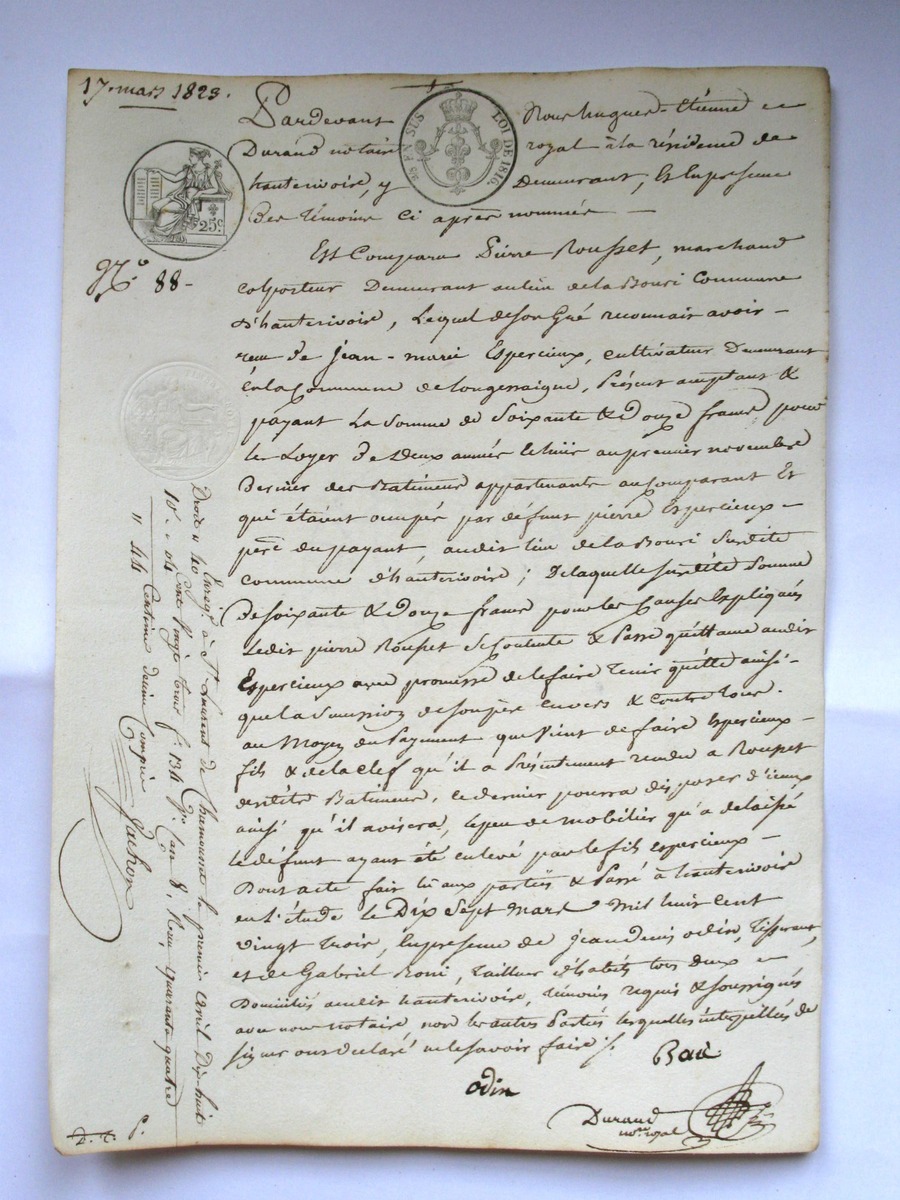 17. mars 1823.
Pardevant Nous hugues-étienne
Durand notaire royal à la résidence de
hauterivoire, y demeurant, et en presence
des témoins ci après nommés
25 EN SUS LOI DE 1816.
25c
N.o 88-
Est Comparu Pierre Rousset, marchand
colporteur Demeurant au lieu de la Bouri Commune
d'hauterivoire, Lequel de son Gré reconnait avoir
reçu de Jean-marie Espercieux, cultivateur Demeurant
en la Commune de Longessaigne, Présent acceptant &
payant La Somme de Soixante & Douze francs pour
le Loyer de Deux années échus au premier novembre
Dernier des Batimens appartenants au Comparant Et
qui étaient occupés par défunt pierre Espercieux
père du payant, audit lieu de la Bouri Susdite
commune d'hauterivoire; De laquelle susdite Somme
de soixante & Douze francs pour les Causes Expliqués
Ledit pierre Rousset se Contente & Passe quittance audit
Espercieux avec promesse de le faire tenir quitte ainsi
que la Succession de son père envers & contre tous.
au Moyen du Payement que Vient de faire Espercieux
fils & de la clef qu'il a Présentement rendu a Rousset
desdits Batimens, ce dernier pourra disposer d'iceux
ainsi qu'il avisera, le peu de mobilier qu'a delaissé
le défunt ayant été enlevé par le fils Espercieux
Dont acte fait lu aux parties & Passé à hauterivoire
en l'étude le Dix Sept Mars Mil huit cent
vingt trois, En presence de Jean Denis odin, tisserant,
et de Gabriel tailleur d'habits tous deux
Domiciliés audit hauterivoire, témoins requis & soussignés
avec nous notaire non les autres Parties lesquelles interpellées de
signer ont déclaré ne le savoir faire
odin
Durand
no.re royal
Enreg.é à S.t Laurent de Chamousset le premier avril Dix-huit
Cent Vingt trois f.o 134 V.o Case 8, Reçu quarante quatre
Centimes decime Compris
Droit " 40
10.e - 04
" 44
D. T. P.